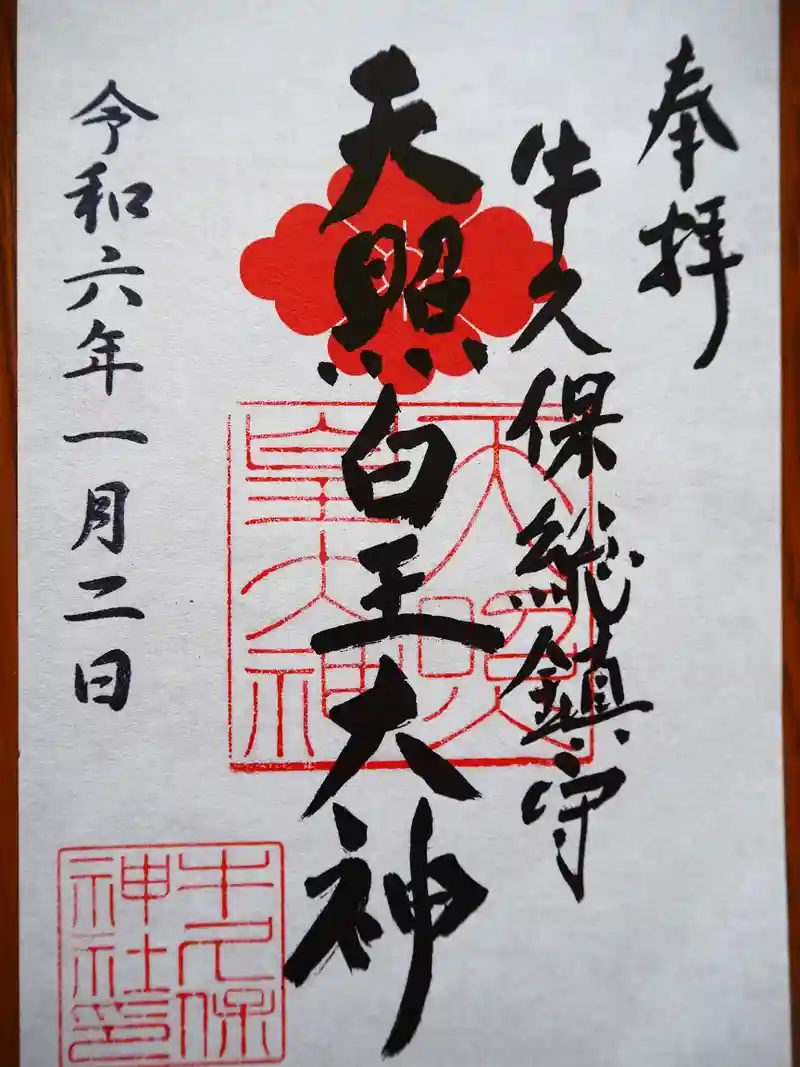 奉拝
牛久保総鎮守
天照白王大神
令和六年一月二日
天照
皇大神
牛久保
神社印